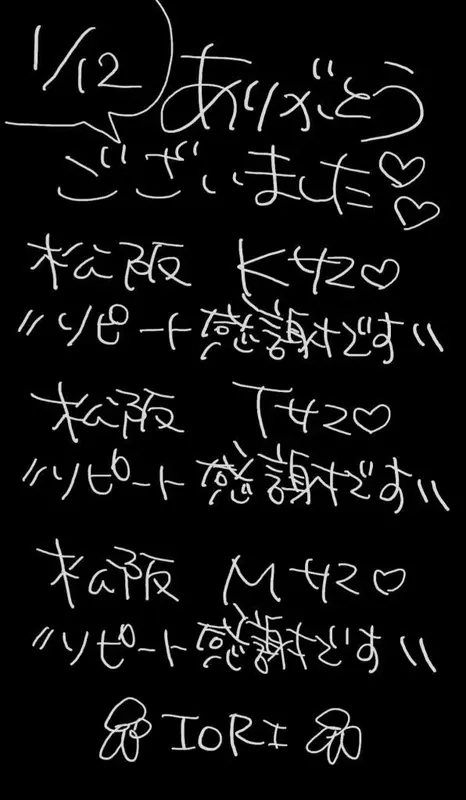 1/12
ありがとう
ございました♡♡
松阪 Kサン♡
〃リピート感謝です〃
松阪 Tサン♡
〃リピート感謝です〃
松阪 Mサン♡
〃リピート感謝です〃
IORI